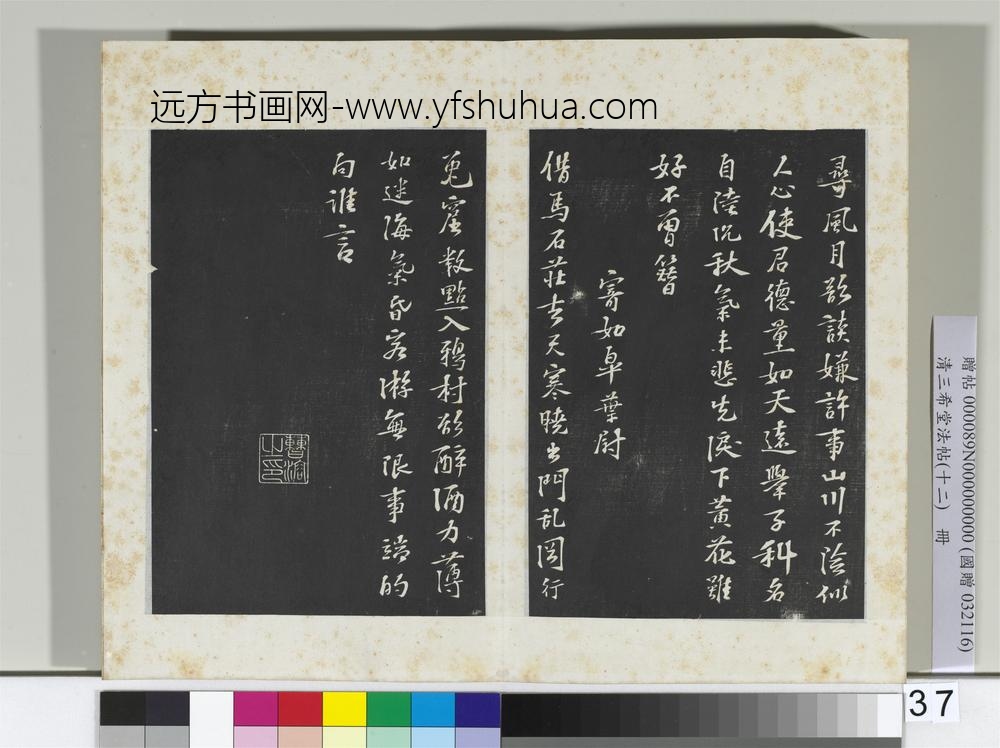 远方书画网-www.yfshuhua.com
尋風月欲談嫌許事山川不險似
人心使君德量如天遠舉子科名
自陸沉秋氣未悲先淚下黃花雖
好不曾簪
寄如皐葉尉
借馬石莊去天寒曉出門乱岡行
兎窟数點入鴉村欲醉酒力薄
如迷海氣昏客游無限事端的
向誰言
贈帖 000089N000000000 (國贈 032116)
清三希堂法帖(十二) 冊
37